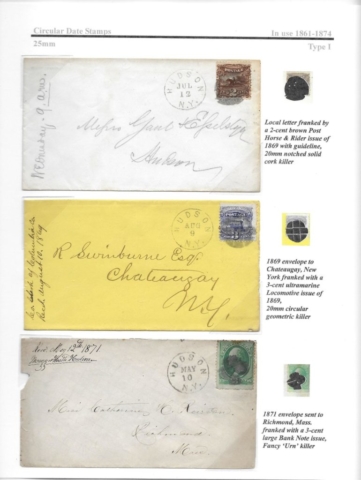 Circular Date Stamps
In use 1861-1874
25mm
Type 1
HUDSON
JUL
12
N.Y.
Wednesday, 9 a.m.
Messrs Gaul &
Hudson
Local letter franked by
a 2-cent brown Post
Horse & Rider issue of
1869 with guideline,
20mm notched solid
cork killer
HUDSON
AUG
9
N.Y.
R Swinburne Esq.
Chateaugay
N.Y.
1869 envelope to
Chateaugay, New
York franked with a
3-cent ultramarine
Locomotive issue of
1869,
20mm circular
geometric killer
May 12th 1871
HUDSON
MAY
10
N.Y.
Miss
Richmond
Mass
1871 envelope sent to
Richmond, Mass.
franked with a 3-cent
large Bank Note issue,
Fancy 'Urn' killer